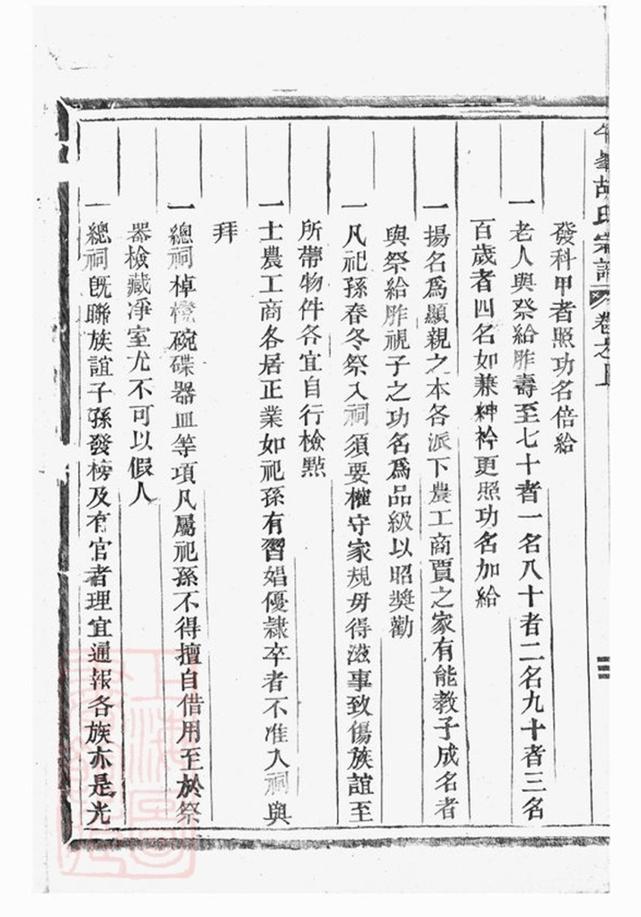 胡氏宗譜
卷之上
三
發科甲者照功名倍給
一老人與祭給胙壽至七十者一名八十者二名九十者三名
百歲者四名如兼紳衿更照功名加給
一揚名爲顯親之本各派下農工商賈之家有能教子成名者
與祭給胙視子之功名爲品級以昭獎勸
一凡祀孫春冬祭入祠須要權守家規毋得滋事致傷族誼至
所帶物件各宜自行檢點
一士農工商各居正業如祀孫有習娼優隸卒者不准入祠與
拜
一總祠棹櫈碗碟器皿等項凡屬祀孫不得擅自借用至於祭
器檢藏凈室尤不可以假人
一總祠旣聯族誼子孫發榜及有官者理宜通報各族亦是光
上海圖